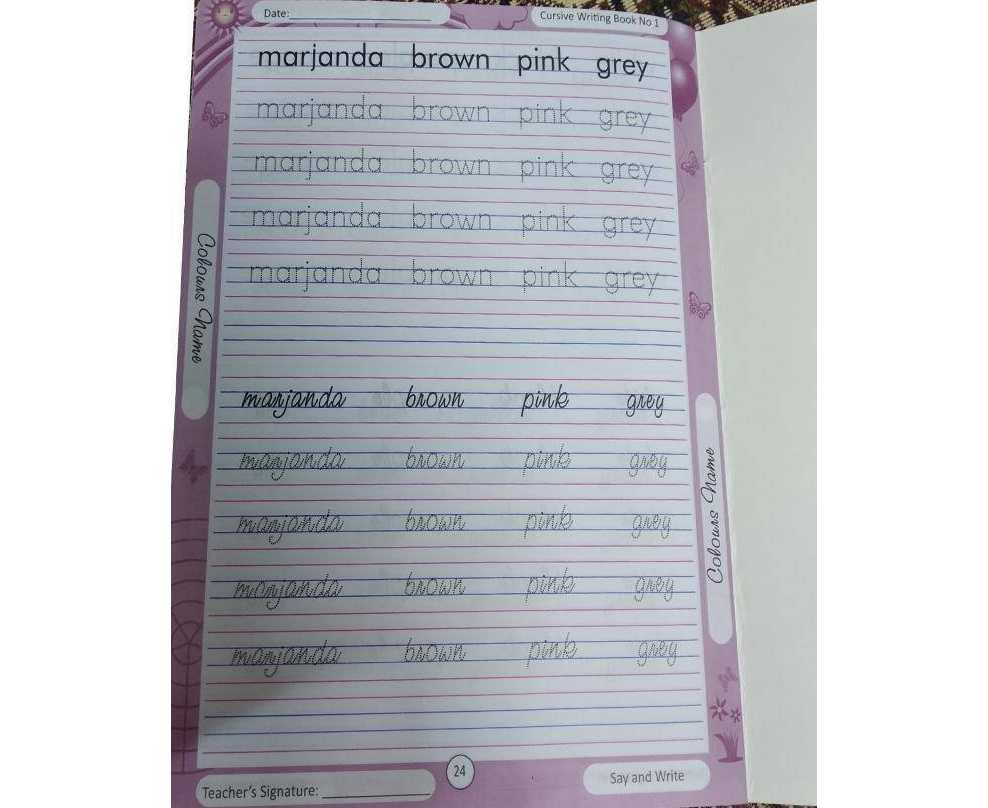 Date:
Cursive Writing Book No 1
marjanda brown pink grey
marjanda brown pink grey
marjanda brown pink grey
marjanda brown pink grey
marjanda brown pink grey
Colours Name
marjanda brown pink grey
marjanda brown pink grey
marjanda brown pink grey
marjanda brown pink grey
marjanda brown pink grey
Colours Name
Teacher's Signature:
24
Say and Write